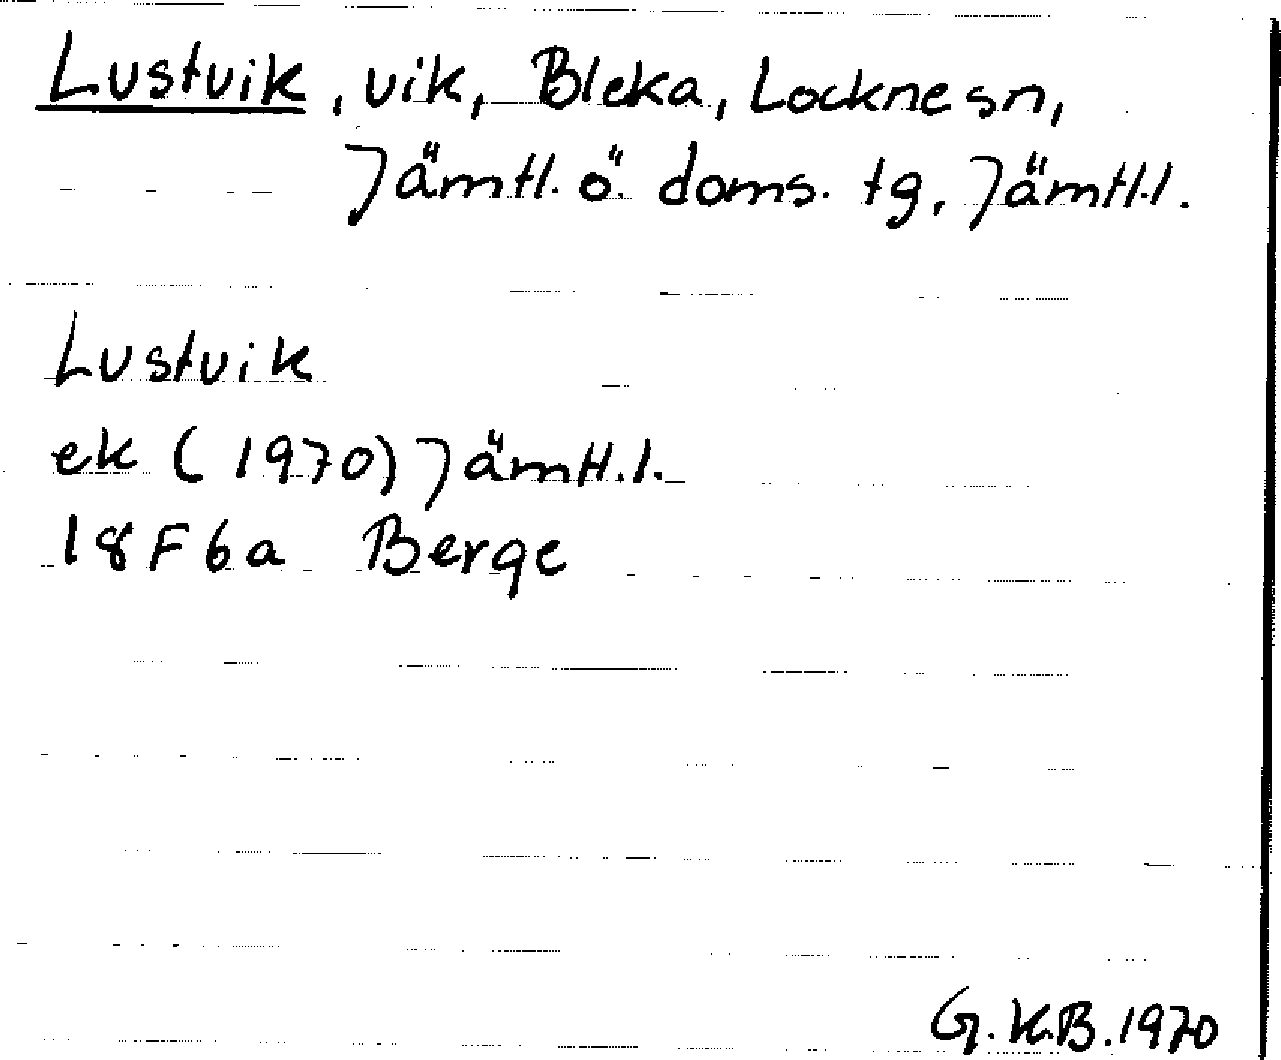 Lustvik, vik, Bleka, Locknesn,
Jämtl. ö. doms. tg, Jämtl.l.
Lustvik
ek (1970) Jämtl.l.
18F6a Berge
G.K.B.1970